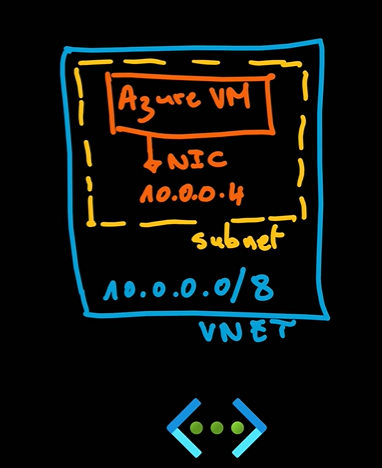 Azure VM
NIC
10.0.0.4
subnet
10.0.0.0/8
VNET